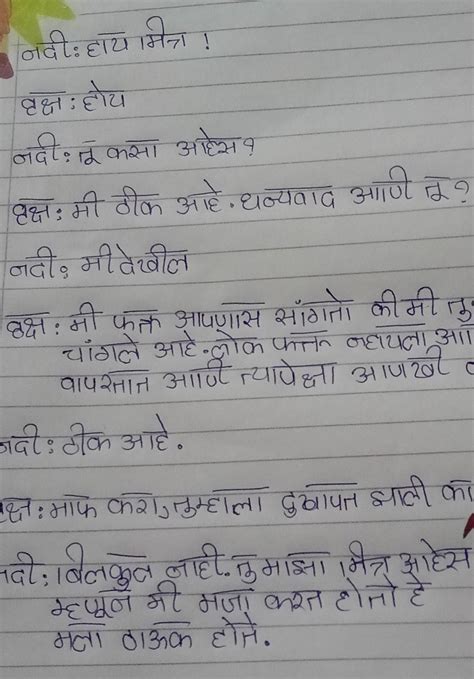 नदी: हाय मित्र !
वृक्ष: होय
नदी: तू कसा आहेस?
वृक्ष: मी ठीक आहे. धन्यवाद आणि तू?
नदी: मी देखील
वृक्ष: मी फक्त आपणास सांगतो की मी तु
चांगले आहे. लोक फक्त न्हायला आ
वापरतात आणि त्यापेक्षा आणखी
नदी: ठीक आहे.
वृक्ष: माफ करा, तुम्हाला दुखापत झाली का
नदी: बिलकुल नाही. तु माझा मित्र आहेस
म्हणून मी मजा करत होतो हे
मला ठाऊक होते.